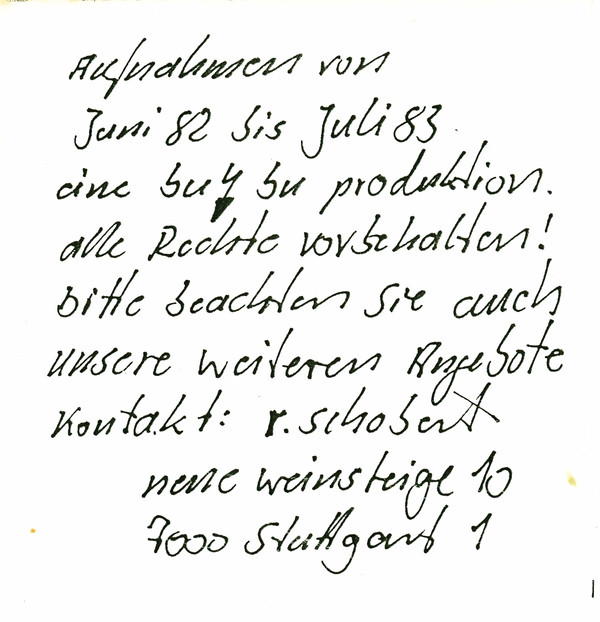 Aufnahmen von
Juni 82 bis Juli 83
eine bu produktion.
alle Rechte vorbehalten!
bitte beachten Sie auch
unsere weiteren Angebote
Kontakt: r. schobert
neue weinsteige 10
7000 Stuttgart 1